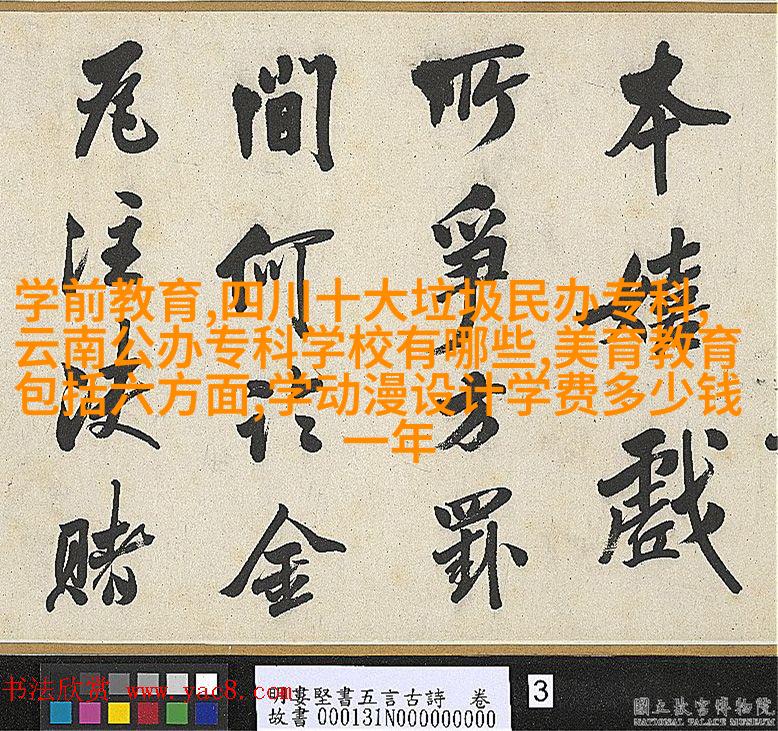 本嬉戲
所爭方罫
間何論金
瓦注決賭
学前教育,四川十大垃圾民办专科,
云南公办专科学校有哪些,美育教育
包括六方面,学动漫设计学费多少钱
一年
书法欣赏 www.yac8.com
明婁堅書五言古詩 卷
故書 000131N000000000
3
國立故宮博物院
NATIONAL PALACE MUSEUM